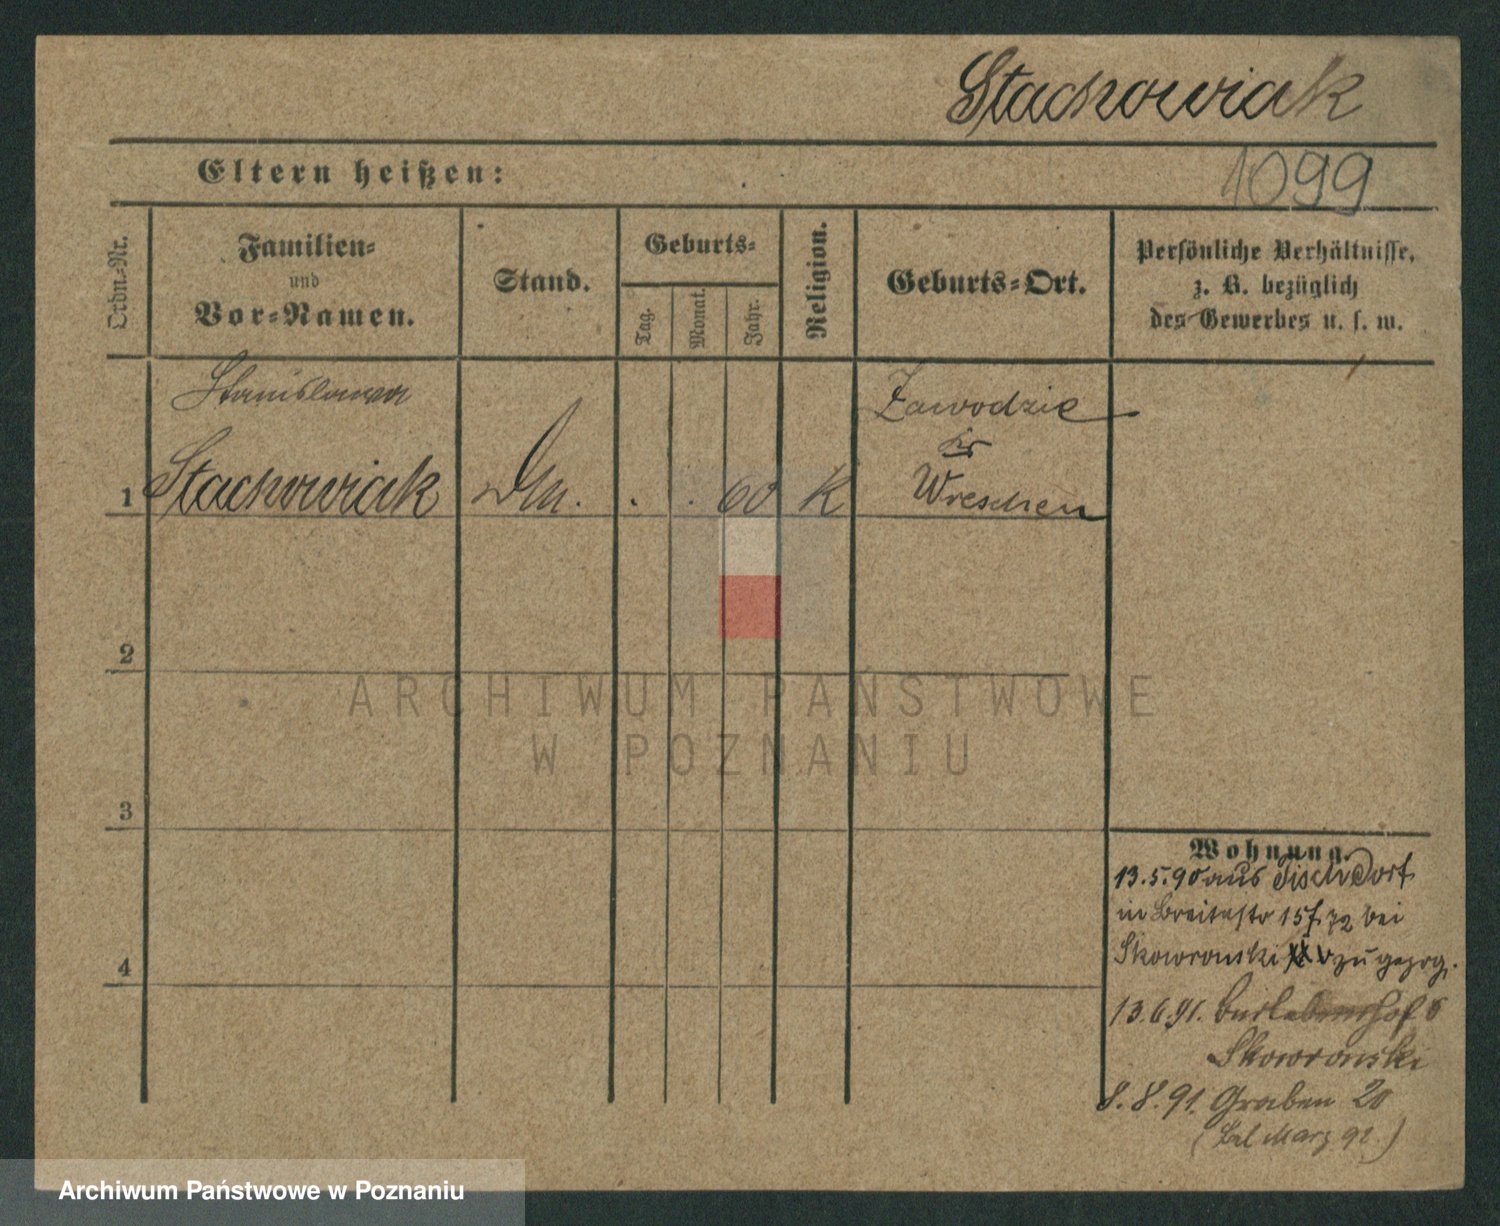 Stachowiak
Eltern heißen:
1099
Ordn.-Nr.
Familien-
und
Vor-Namen.
Stand.
Geburts-
Tag.
Monat.
Jahr.
Religion.
Geburts-Ort.
Persönliche Verhältnisse,
z. B. bezüglich
des Gewerbes u. s. w.
Stanislawa
Zawodzie
Kr
1 Stachowiak . . 60 K Wreschen
2
ARCHIWUM PAŃSTWOWE
W POZNANIU
3
Wohnung.
13.5.90 aus Tischdorf
in Breitestr 15 f. 72 bei
Skowronski zugezog.
4
13.6.91.
Skowronski
8.8.91. Graben 20
März 92.)
Archiwum Państwowe w Poznaniu